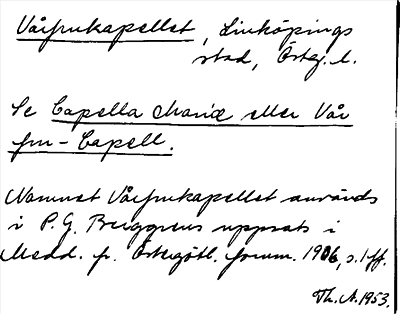 Vårfrukapellet, Linköpings
stad, Österg. l.
Se Capella Mariæ eller Vår
fru-Capell.
Namnet Vårfrukapellet används
i P. G. Berggrens uppsats i
Medd. fr. Östergötl. fornm. 1906, s. 1 ff.
Th. A. 1953.